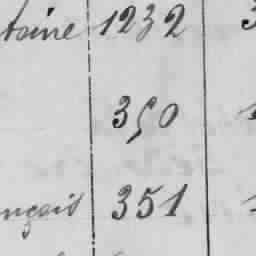 toine 1232
350
nçois 351